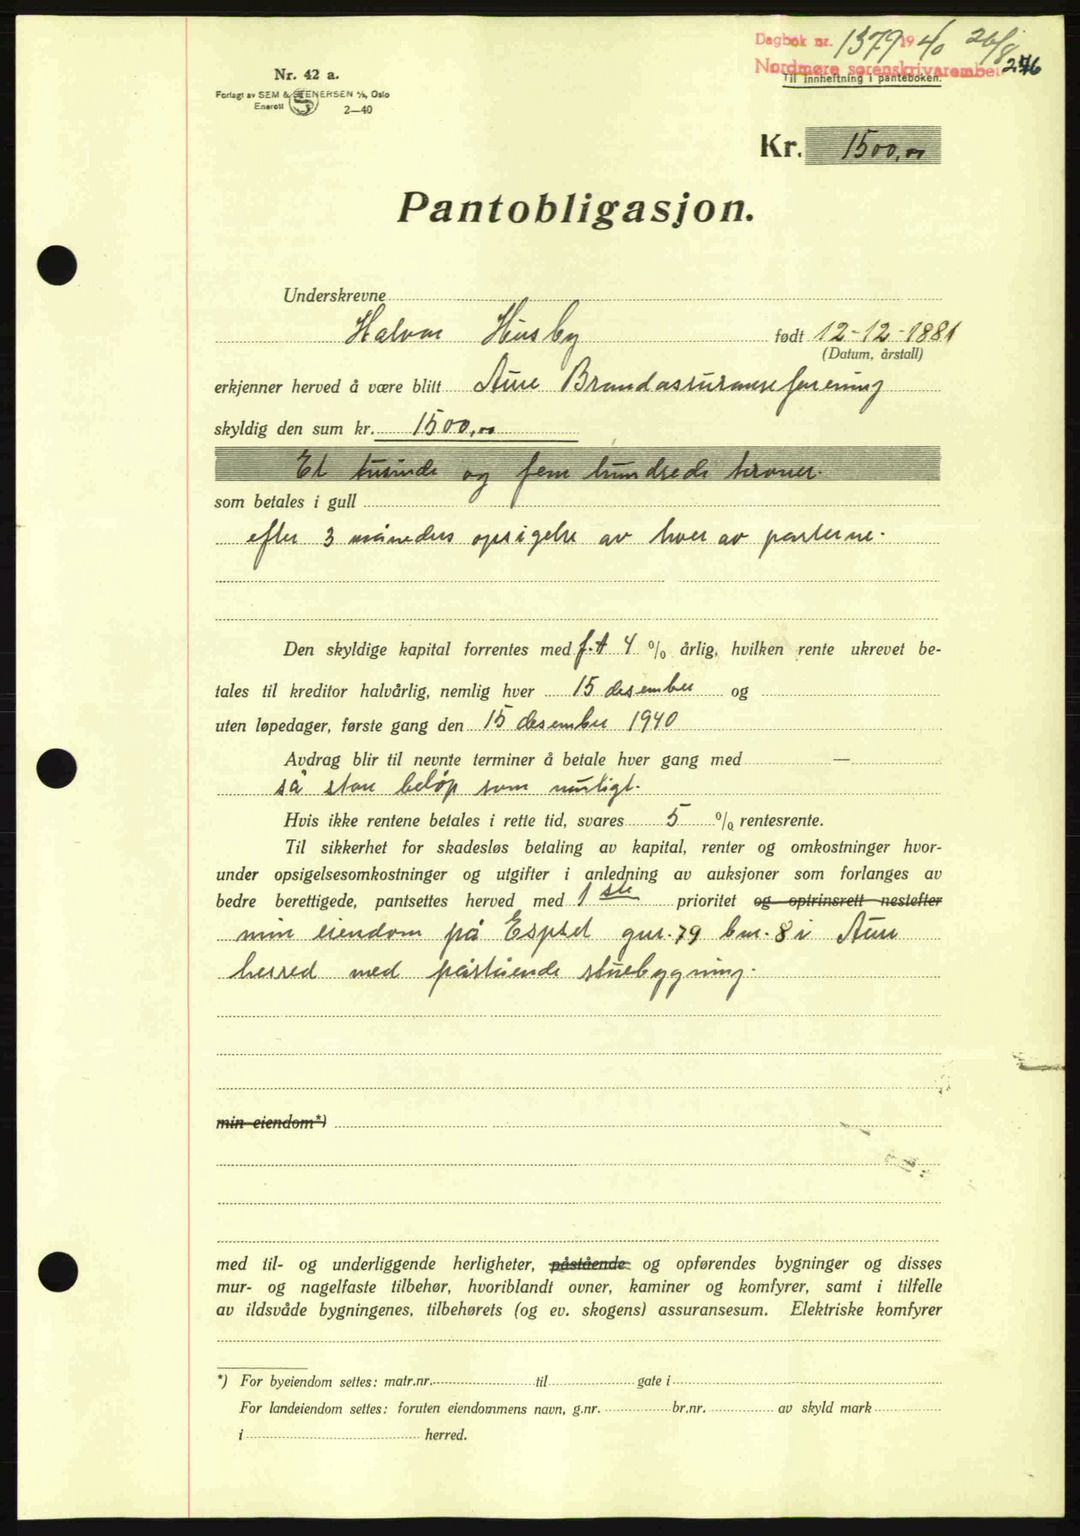 Dagbok nr. 1379 1940 26/8
Nordmøre sorenskriverembet 276
Til innheftning i panteboken.
Nr. 42 a.
Forlagt av SEM & STENERSEN A/S, Oslo
Enerett 2—40
Kr. 1500,00
Pantobligasjon.
Underskrevne
Halvor Husby født 12-12-1881
(Datum, årstall)
erkjenner herved å være blitt Aure Brandassuranseforening
skyldig den sum kr. 1500,00
Et tusinde og fem hundrede kroner.
som betales i gull
efter 3 måneders opsigelse av hver av parterne.
Den skyldige kapital forrentes med f.t 4 % årlig, hvilken rente ukrevet be-
tales til kreditor halvårlig, nemlig hver 15 desember og
uten løpedager, første gang den 15 desember 1940
Avdrag blir til nevnte terminer å betale hver gang med —
så stort beløp som muligt.
Hvis ikke rentene betales i rette tid, svares 5 % rentesrente.
Til sikkerhet for skadesløs betaling av kapital, renter og omkostninger hvor-
under opsigelsesomkostninger og utgifter i anledning av auksjoner som forlanges av
bedre berettigede, pantsettes herved med 1 ste prioritet og optrinsrett nestefter
min eiendom på Espset gnr. 79 bnr. 8 i Aure
herred med påstående stuebygning.
min eiendom*)
med til- og underliggende herligheter, påstående og opførendes bygninger og disses
mur- og nagelfaste tilbehør, hvoriblandt ovner, kaminer og komfyrer, samt i tilfelle
av ildsvåde bygningenes, tilbehørets (og ev. skogens) assuransesum. Elektriske komfyrer
*) For byeiendom settes: matr.nr. til gate i
For landeiendom settes: foruten eiendommens navn, g.nr. br.nr. av skyld mark
i herred.